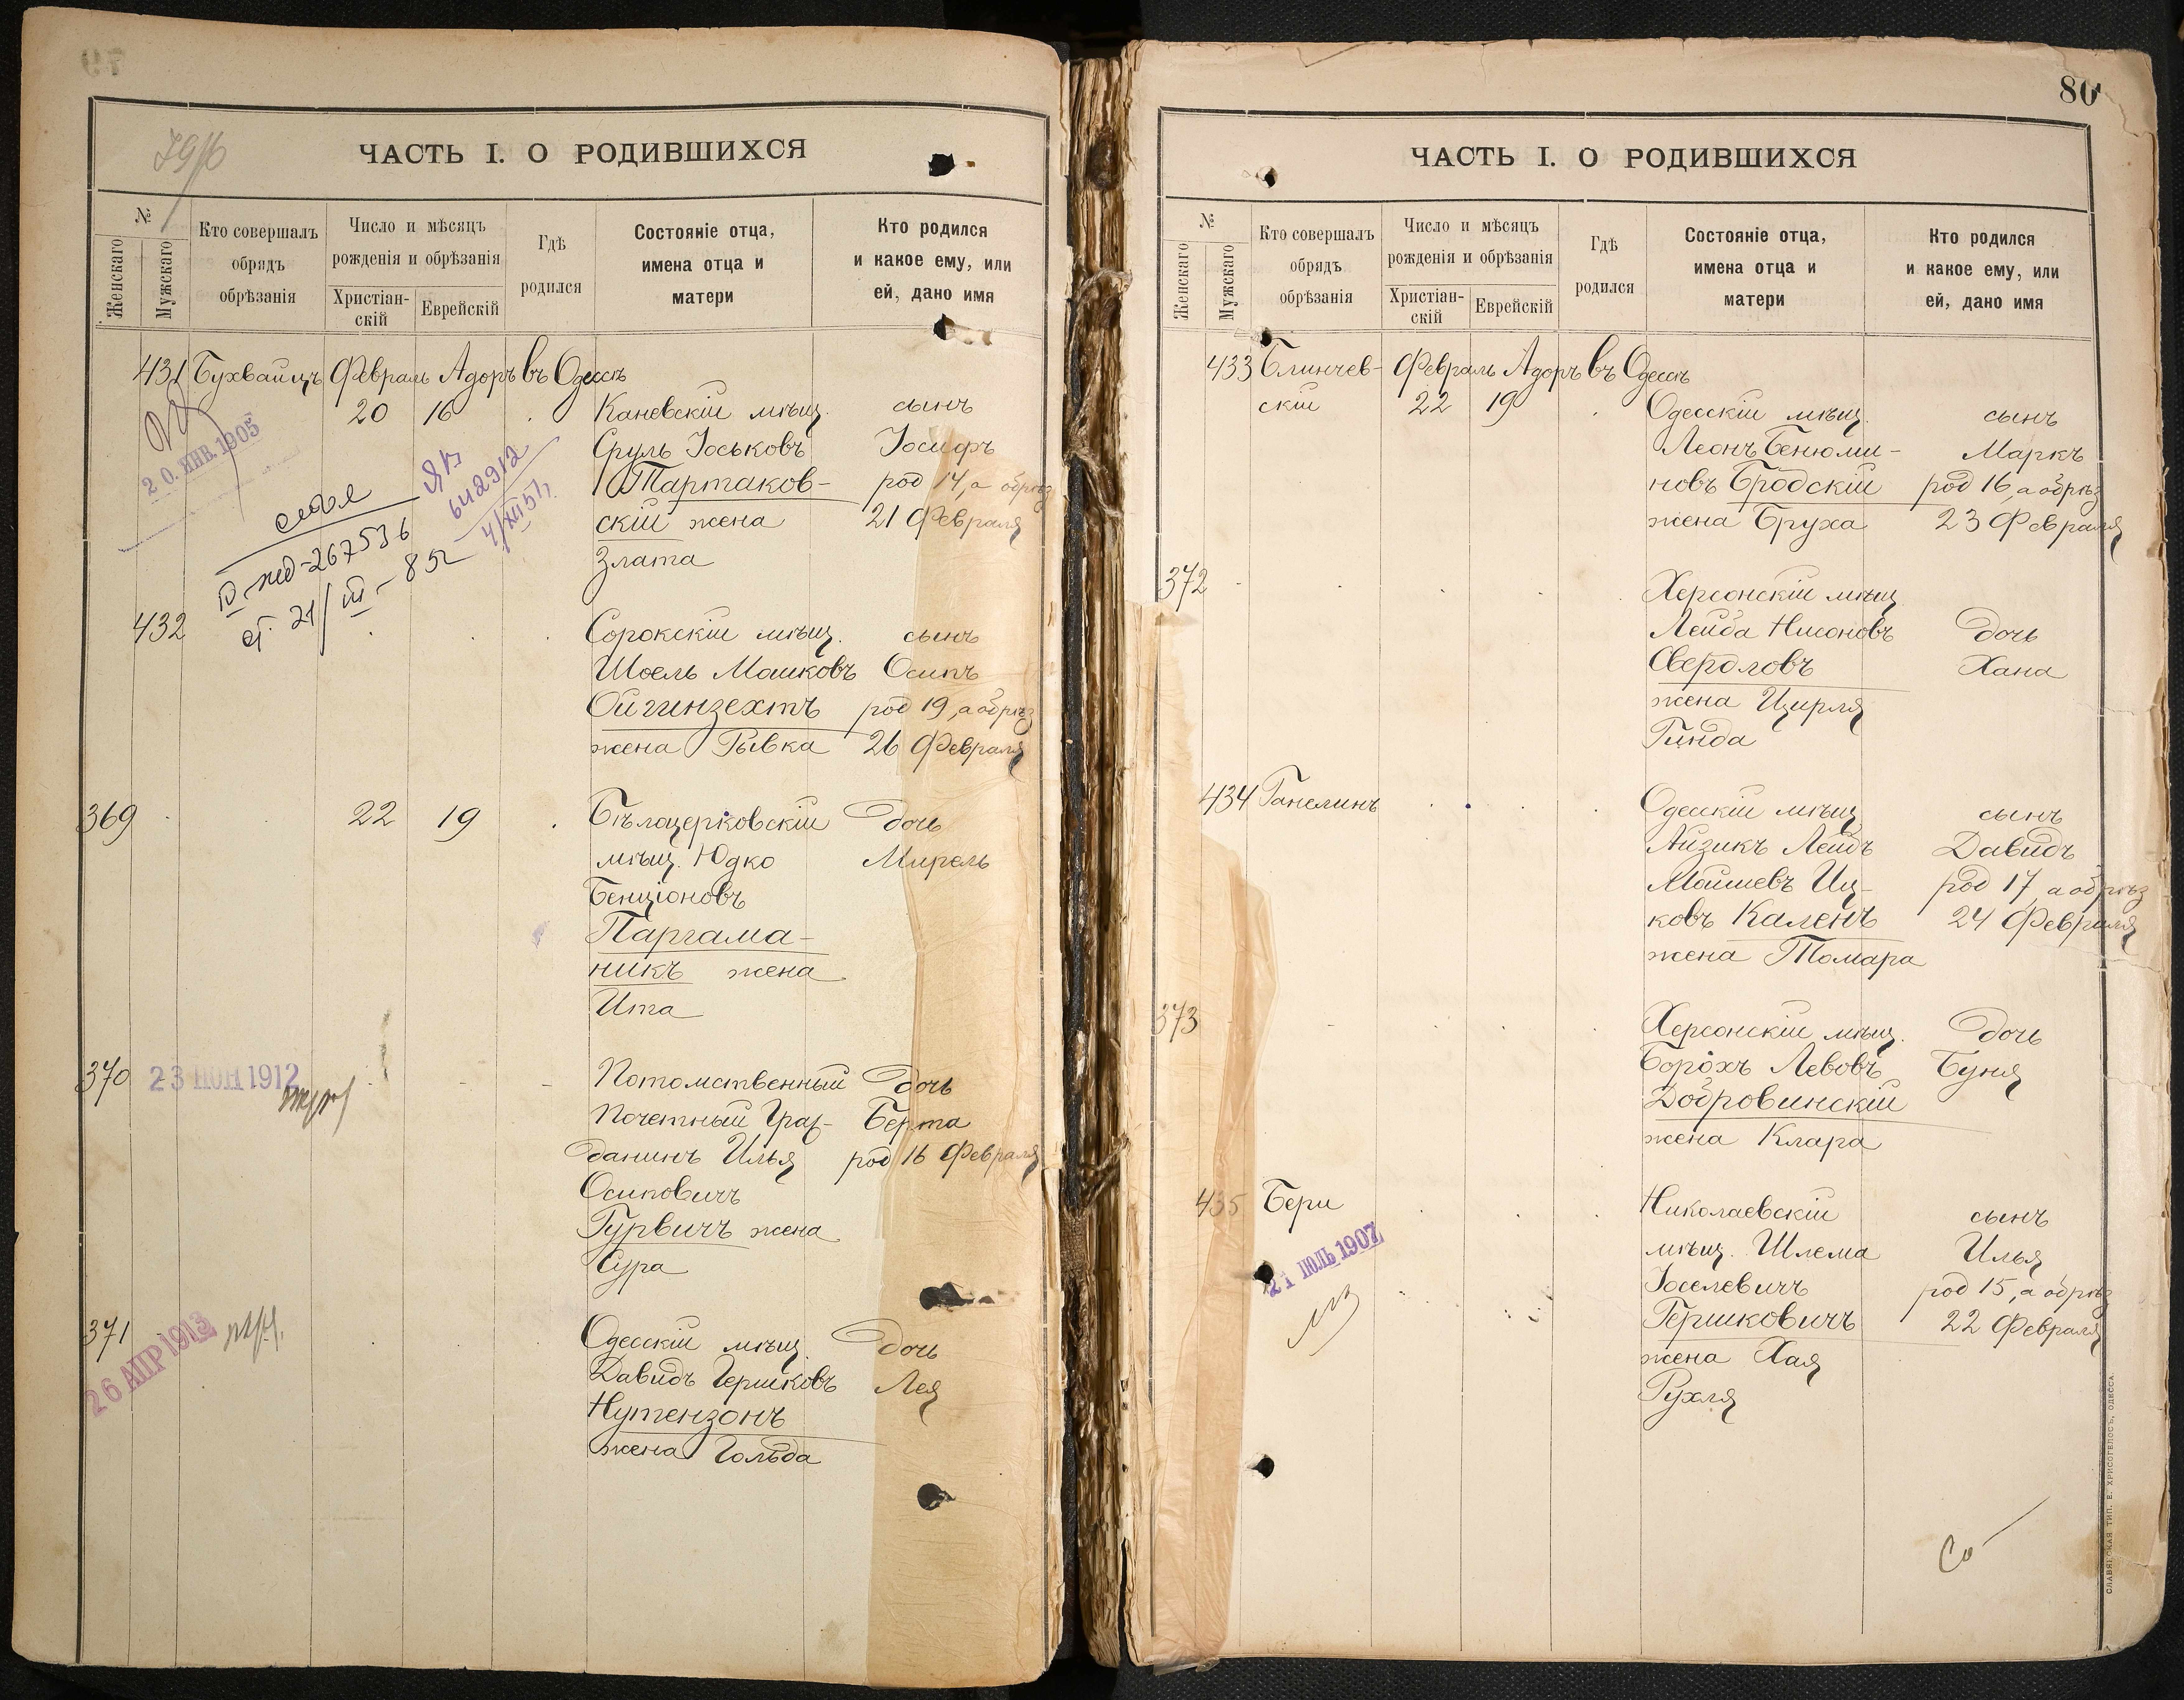 ЧАСТЬ I. О РОДИВШИХСЯ
№
Женскаго
Мужскаго
Кто совершалъ
обрядъ
обрѣзанія
Число и мѣсяцъ
рожденія и обрѣзанія
Христіан-
скій
Еврейскій
Гдѣ
родился
Состояніе отца,
имена отца и
матери
Кто родился
и какое ему, или
ей, дано имя
431 Бухвайцъ Февраль Адоръ въ Одессѣ
20 16 Каневскій мѣщ. сынъ
20. ЯНВ. 1905
Сруль Іоськовъ Іосифъ
Тартаков- род 14, а обрѣз
скій жена 21 Февраля
Злата
267536
21/III
642912
432 Сорокскій мѣщ. сынъ
Шоель Мошковъ Осипъ
Ойгинзехтъ род 19, а обрѣз
жена Рывка 26 Февраля
369 22 19 Бѣлоцерковскій дочь
мѣщ. Юдко Мирель
Бенціоновъ
Паргама-
никъ жена
Ита
370 23 ІЮН 1912 Потомственный дочь
Почетный Граж- Берта
данинъ Илья род 16 Февраля
Осиповичъ
Гурвичъ жена
Сура
371 26 АПР 1913 Одесскій мѣщ. дочь
Давидъ Гершковъ Лея
Нутензонъ
жена Гольда
80
ЧАСТЬ I. О РОДИВШИХСЯ
№
Женскаго
Мужскаго
Кто совершалъ
обрядъ
обрѣзанія
Число и мѣсяцъ
рожденія и обрѣзанія
Христіан-
скій
Еврейскій
Гдѣ
родился
Состояніе отца,
имена отца и
матери
Кто родился
и какое ему, или
ей, дано имя
433 Блинчев- Февраль Адоръ въ Одессѣ
скій 22 19 Одесскій мѣщ. сынъ
Леонъ Бенюми- Маркъ
новъ Бродскій род 16, а обрѣз
жена Бруха 23 Февраля
372 Херсонскій мѣщ
Лейба Нисоновъ дочь
Свердловъ Хана
жена Цирля
Гинда
434 Ганелинъ Одесскій мѣщ сынъ
Айзикъ Лейбъ Давидъ
Мошиевъ Иц- род 17, а обрѣз
ковъ Каленъ 24 Февраля
жена Томара
373 Херсонскій мѣщ. дочь
Борохъ Левовъ Буня
Добровинскій
жена Клара
435 Бери Николаевскій сынъ
21 ІЮЛЬ 1907
мѣщ. Шлема Илья
Іоселевичъ род 15, а обрѣз
Гершковичъ 22 Февраля
жена Хая
Рухля
СЛАВЯНСКАЯ ТИП. Е. ХРИСОГЕЛОСЪ, ОДЕССА